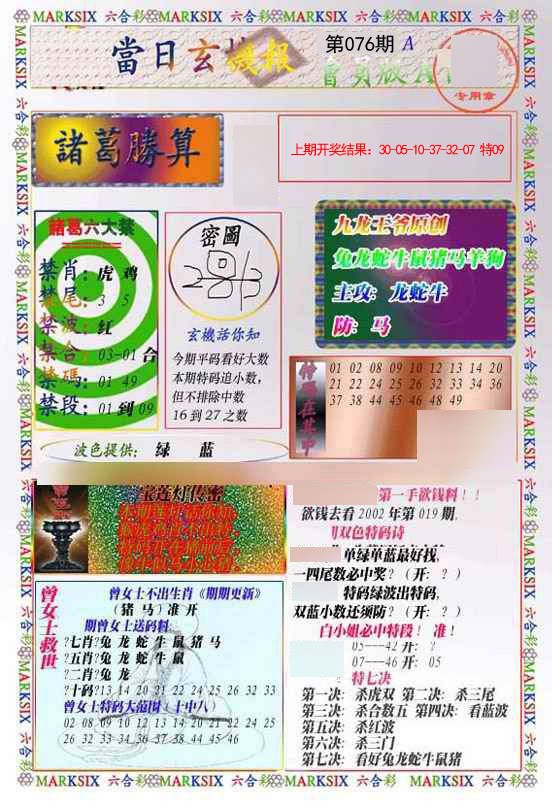 MARKSIX 六合彩 MARKSIX 六合彩 MARKSIX 六合彩 MARKSIX 六合彩
當日玄機報
第076期 A
會員版A
专用章
諸葛勝算
上期开奖结果：30-05-10-37-32-07 特09
諸葛六大禁
禁肖：虎 鸡
禁尾：3 5
禁波：红
禁合：03-01合
禁碼：01 49
禁段：01到09
密圖
玄機話你知
今期平码看好大数
本期特码追小数，
但不排除中数
16到27之数
九龙王爷原创
兔龙蛇牛鼠猪马羊狗
主攻：龙蛇牛
防：马
特碼在其中
01 02 08 09 10 12 13 14 20
21 22 24 25 26 32 33 34 36
37 38 44 45 46 48 49
波色提供：绿 蓝
宝莲灯传密
第一手欲钱料！！
欲钱去看2002年第019期.
双色特码诗
单绿单蓝最好找,
一四尾数必中奖？(开：？)
特码绿波出特码,
双蓝小数还须防？(开：？)
白小姐必中特段！ 准！
05---42 开：？
07---46 开：05
特七决
第一决：杀虎双 第二决：杀三尾
第三决：杀合数五 第四决：看蓝波
第五决：杀红波
第六决：杀三门
第七决：看好兔龙蛇牛鼠猪
曾女士救世
曾女士不出生肖《期期更新》
(猪 马)准开
期曾女士送码料
?七肖?兔 龙 蛇 牛 鼠 猪 马
?五肖?兔 龙 蛇 牛 鼠
?二肖?兔 龙
?十码?13 14 20 21 22 24 25 26 32 33
曾女士特码大范围（十中八）
02 08 09 10 12 13 14 20 21 22 24 25
26 32 33 34 36 37 38 44 45 46
MARKSIX 六合彩 MARKSIX 六合彩 MARKSIX 六合彩 MARKSIX 六合彩